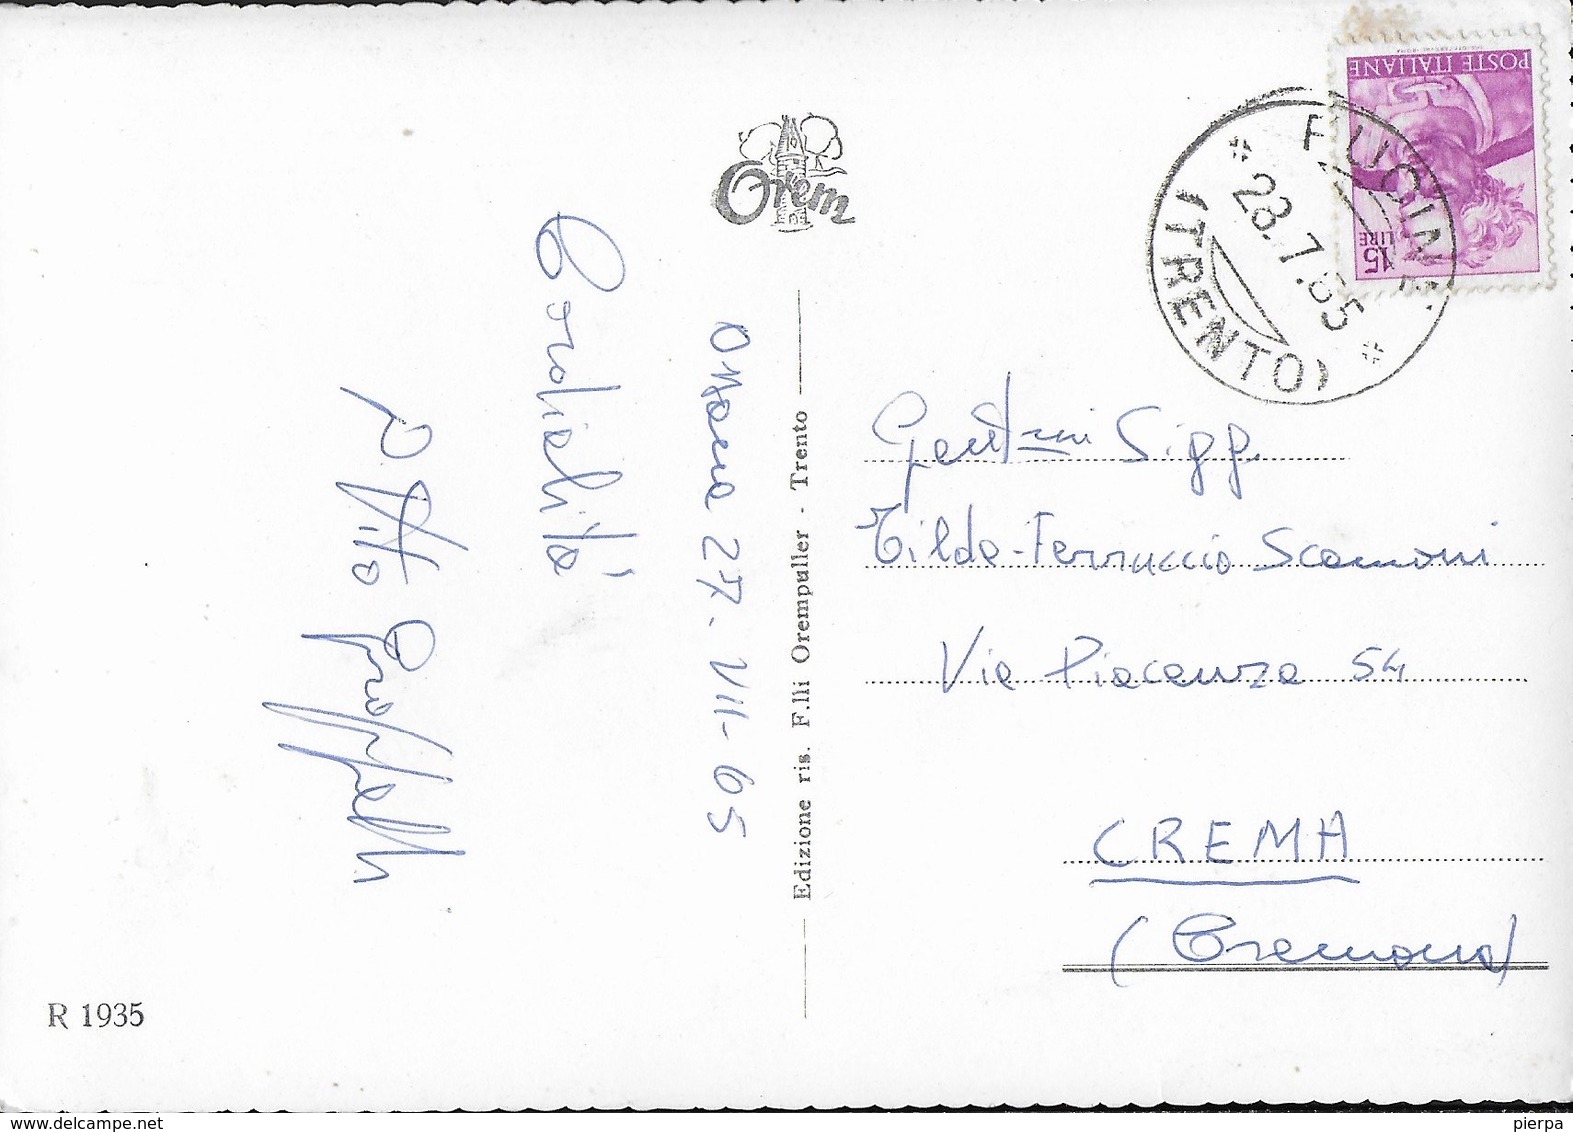 POSTE ITALIANE
15
LIRE
FUCINE
(TRENTO)
28.7.65
Orem
Ossana 27. VII-65
Cordialità
Vito
Edizione ris. F.lli Orempuller - Trento
Gent.mi Sigg.
Tilde-Ferruccio Scamoni
Via Piacenza 54
CREMA
(Cremona)
R 1935
delcampe.net
pierpa